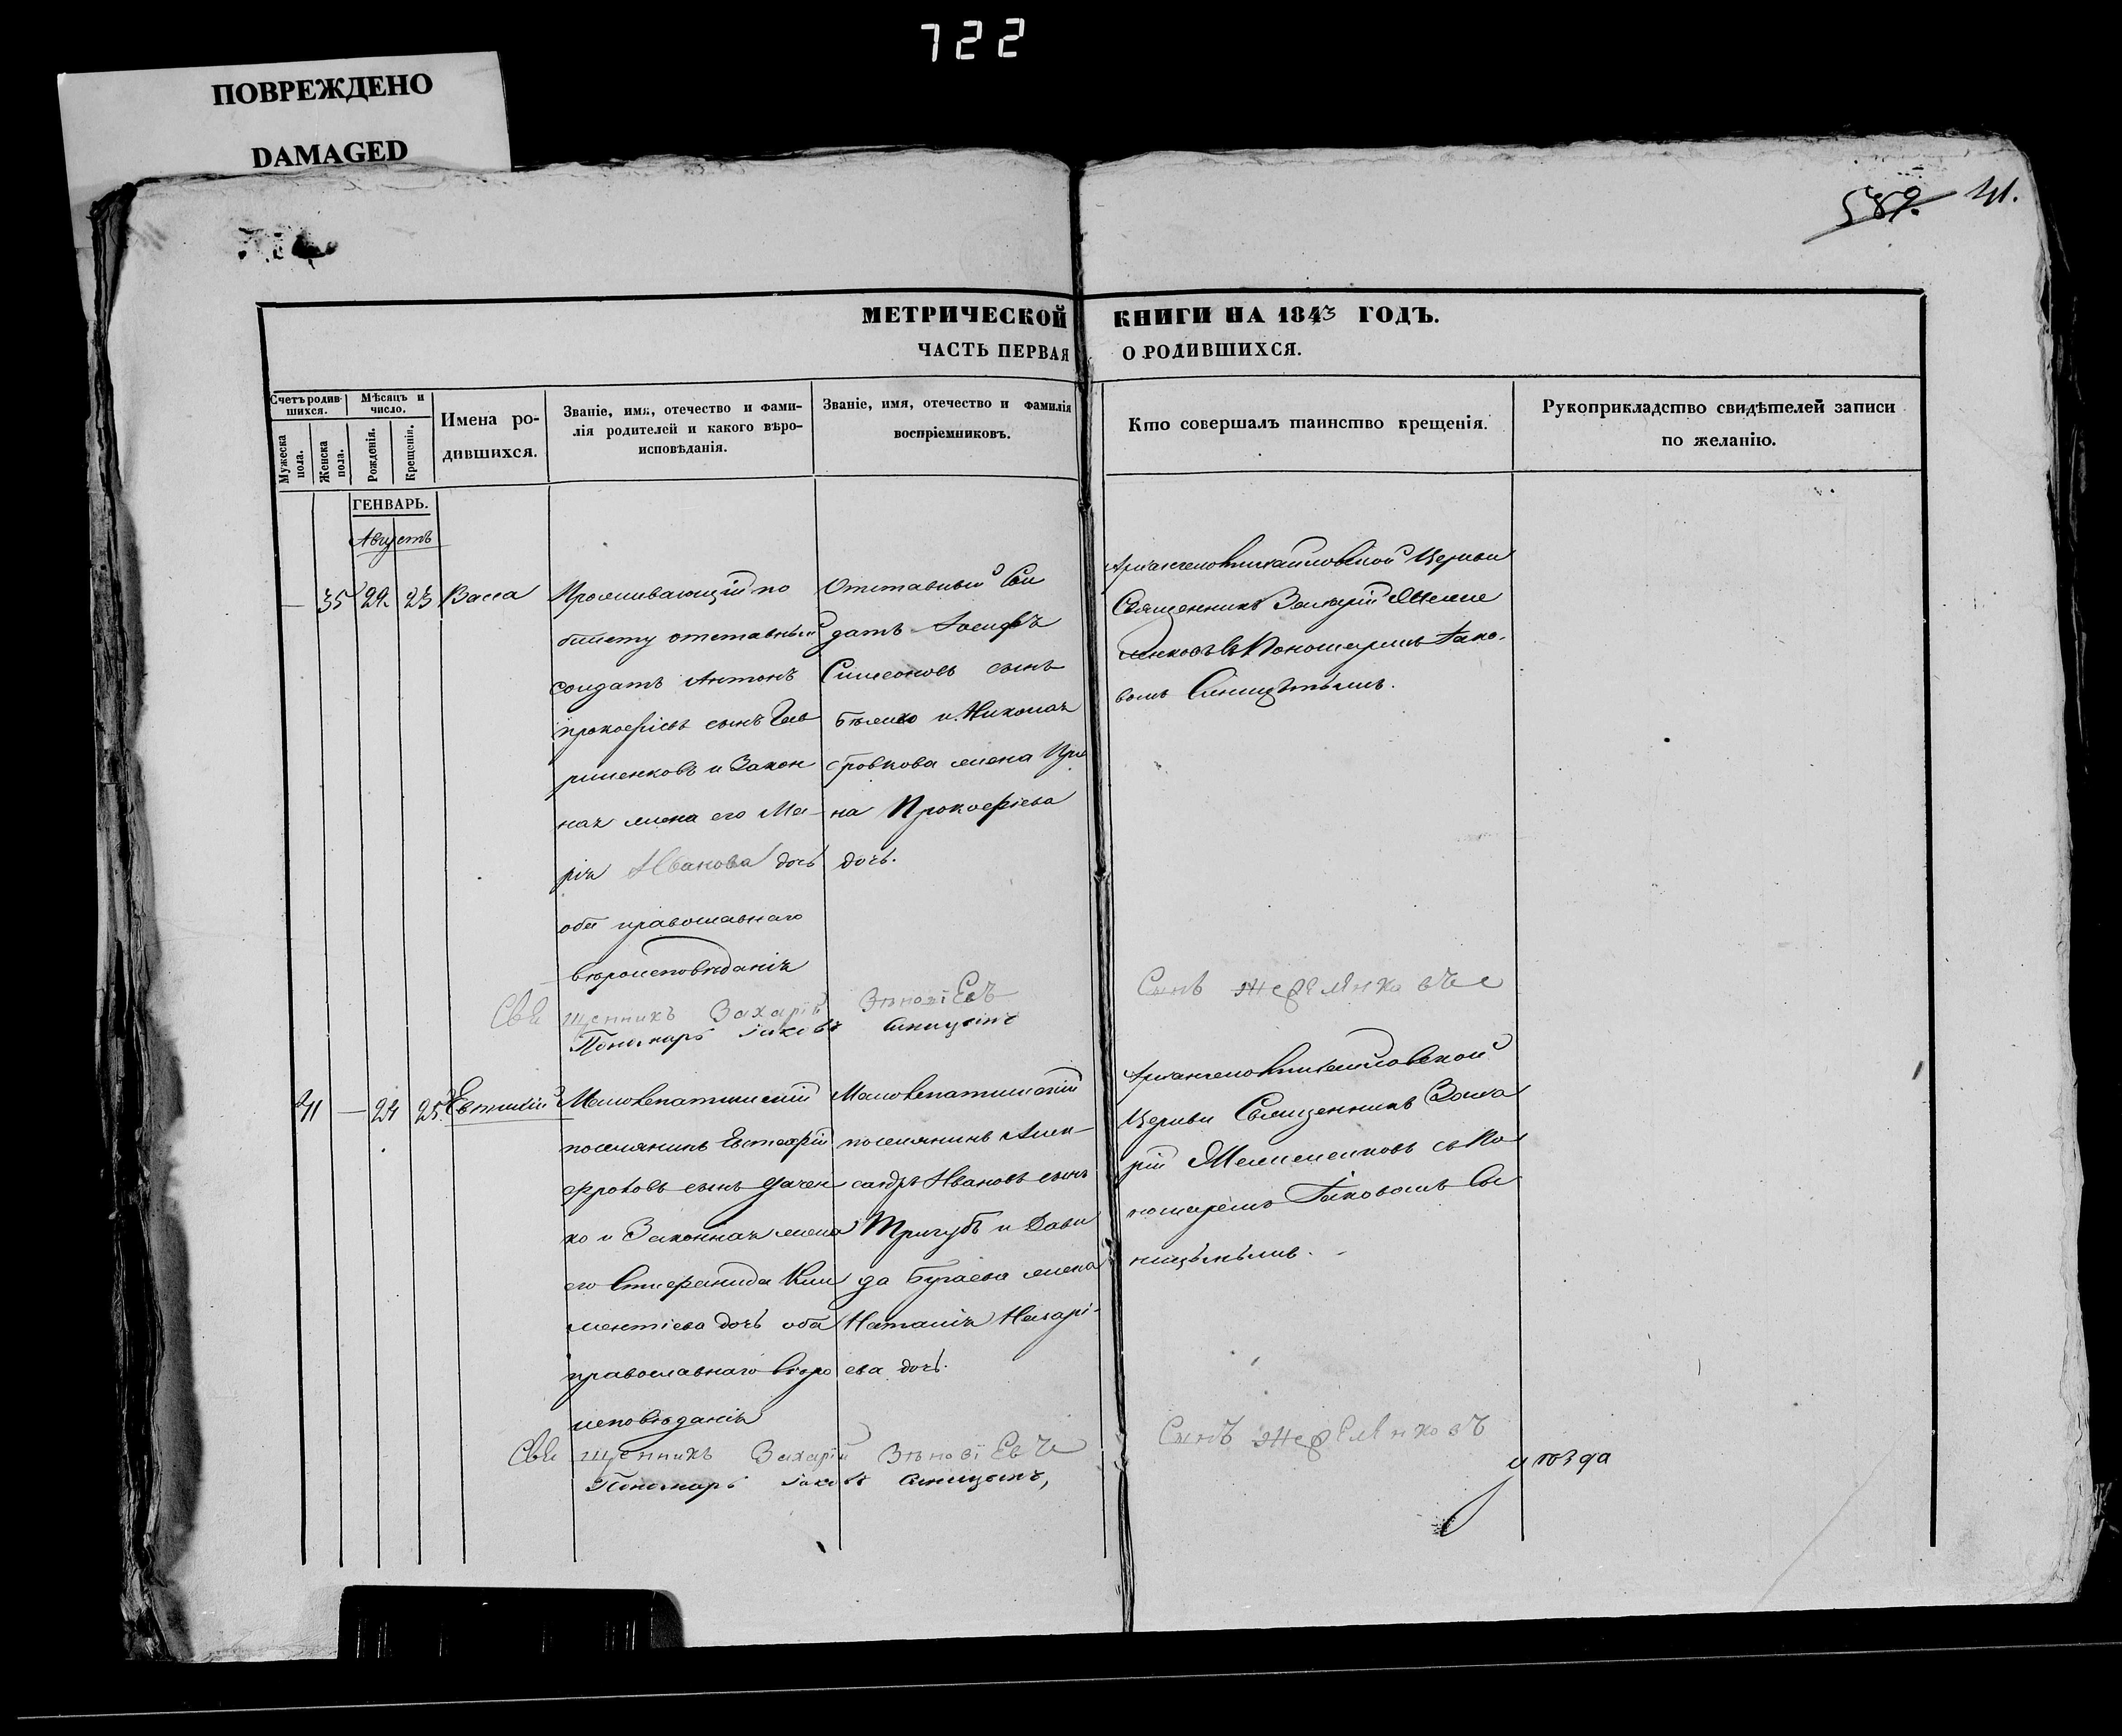 722
ПОВРЕЖДЕНО
DAMAGED
589. 41.
МЕТРИЧЕСКОЙ КНИГИ НА 1843 ГОДЪ.
ЧАСТЬ ПЕРВАЯ О РОДИВШИХСЯ.
Счетъ родив-
шихся.
Мужеска
пола.
Женска
пола.
Мѣсяцъ и
число.
Рожденія.
Крещенія.
Имена ро-
дившихся.
Званіе, имя, отечество и фами-
лія родителей и какого вѣро-
исповѣданія.
Званіе, имя, отечество и фамилія
воспріемниковъ.
Кто совершалъ таинство крещенія.
Рукоприкладство свидѣтелей записи
по желанію.
ГЕНВАРЬ.
Августъ
— 35 22 23 Васса
Проживающій по
билету отставный
солдатъ Антонъ
Прокофіевъ сынъ Гав
риленковъ и Закон
ная жена его Ма-
рія Иванова дочь
оба православнаго
вѣроисповѣданія
Отставный Сол
датъ Іосифъ
Симеоновъ сынъ
Бѣлико и Николая
жена Ири
на Прокофіева
дочь.
Архангеломихайловской Церкви
Священникъ Захарій
съ Пономаремъ Іако-
вомъ Синицынымъ.
Священникъ Захарій ЗѣновіЕвъ Сынъ
Пономарь Іаковъ Синицынъ
41 — 24 25 Евтихій
поселянинъ Евстафій
сынъ
ко и Законная жена
его Стефанида Кли
ментіева дочь оба
православнаго вѣро
исповѣданія
поселянинъ Алек-
сандръ Ивановъ сынъ
Тригубъ и Дави
да Бугаева жена
Наталія Назарі-
ева дочь.
Архангеломихайловской
Церкви Священникъ Заха
рій съ По
номаремъ Іаковомъ Си
ницынымъ.
Священникъ Захарій ЗѣновіЕвъ Сынъ
Пономарь Іаковъ Синицынъ,